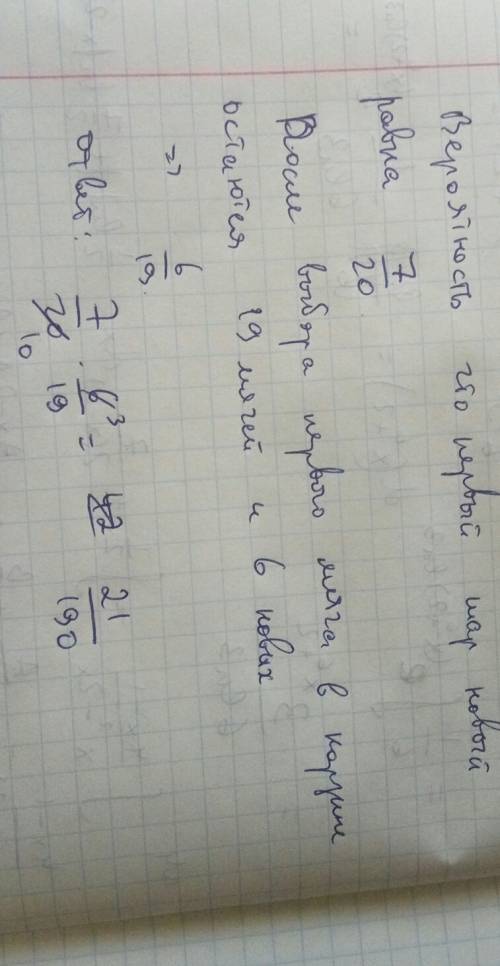 Вероятность что первый шар новый
равна 7/20
После выбора первого мяча в корзине
остаются 19 мячей и 6 новых
=> 6/19.
ответ: 7/20 10 · 6 3/19 = 42 21/190